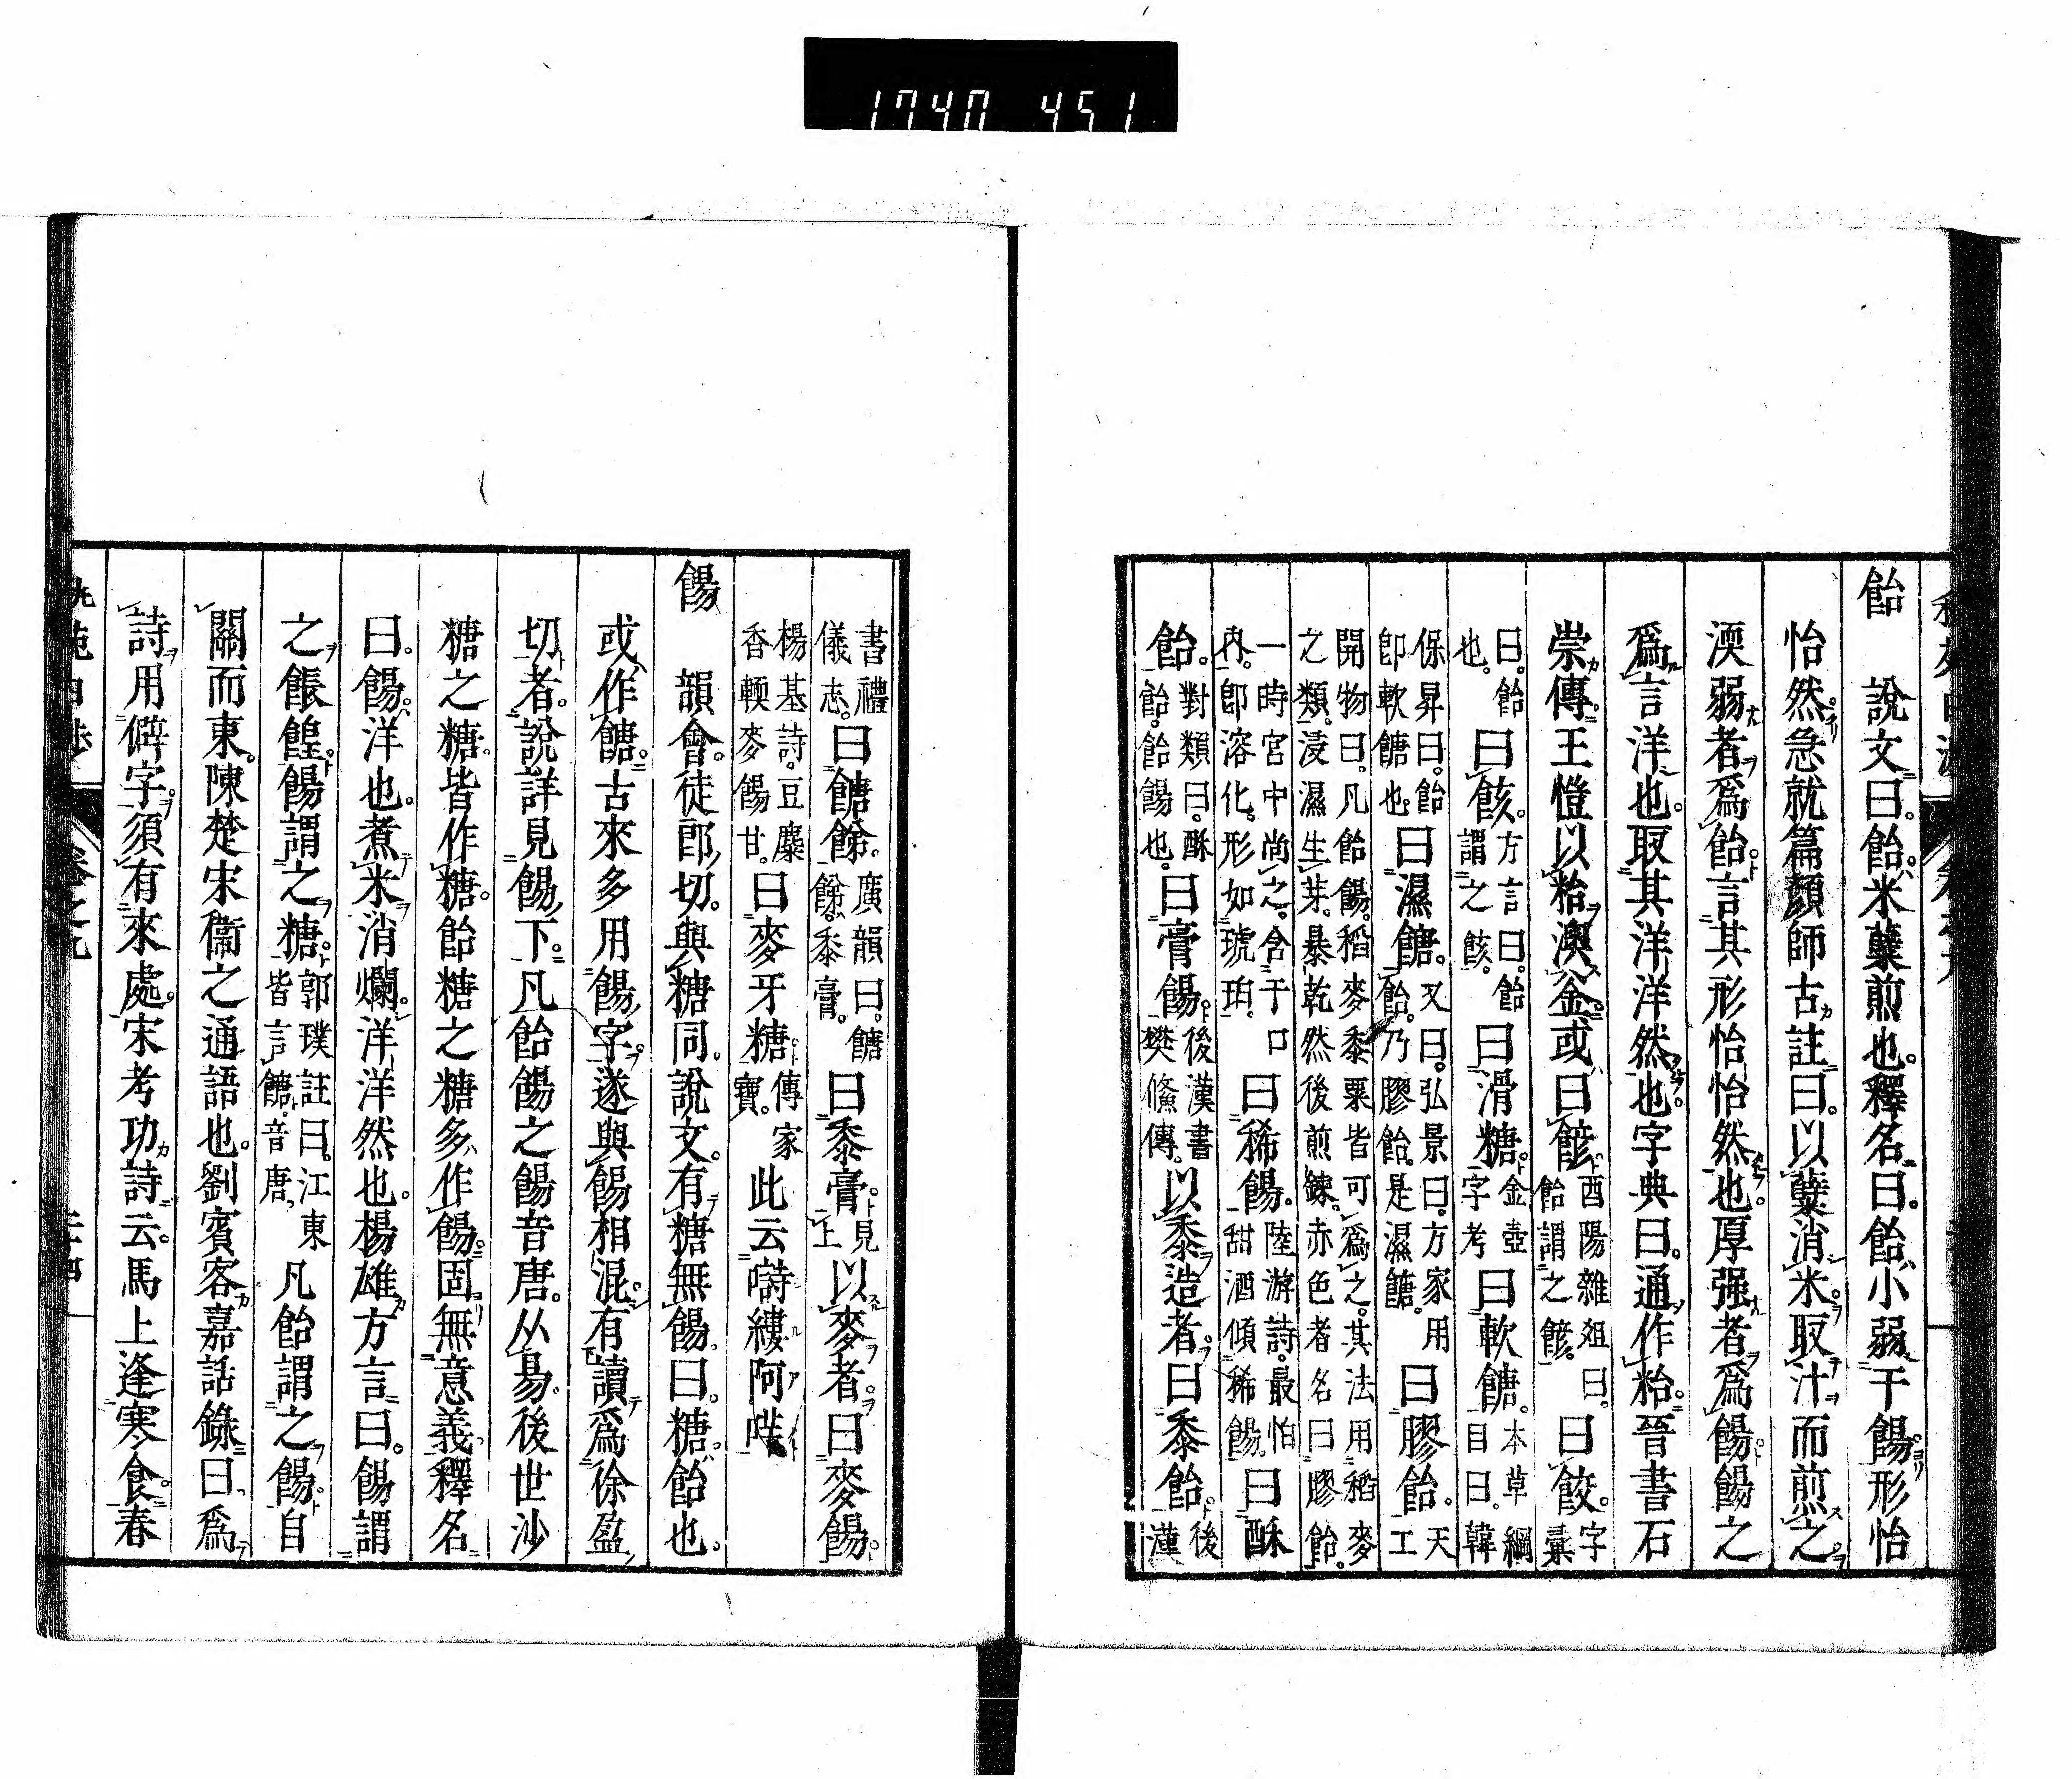 1740 451
飴　說文曰。飴米糵煎也。釋名曰。飴小弱于餳形怡
怡然。急就篇顏師古註曰。以糵消米。取汁而煎之。
渜弱者爲飴。言其形怡怡然也。厚强者爲餳。餳之
爲言洋也。取其洋洋然也。字典曰。通作粭。晉書石
崇傳。王愷以粭澳釜。或曰䬵。酉陽雜俎曰。飴謂之䬵。曰餃。字彙
曰。飴也。曰䬵。方言曰。飴謂之䬵。曰滑糖。金壺字考曰軟餹。本草綱目曰。韓
保昇曰。飴卽軟餹也。曰濕餹。又曰。弘景曰。方家用飴。乃膠飴。是濕餹。曰膠飴。天工
開物曰。凡飴餳。稻麥黍粟皆可爲之。其法用稻麥
之類。浸濕生芽。暴乾然後煎鍊。赤色者名曰膠飴。
一時宮中尚之。含于口內。卽溶化。形如琥珀。曰稀餳。陸游詩。最怕甜酒傾稀餳。曰酥
飴。對類曰。酥飴。飴餳也。曰膏餳。後漢書樊儵傳。以黍造者。曰黍飴。後漢
書禮儀志。曰餹餘。廣韻曰。餹餘。黍膏。曰黍膏。見上以麥者。曰麥餳。
楊基詩。豆糜香輭麥餳甘。曰麥牙糖。傳家寶。此云嗬縷阿
餳　韻會。徒郎切。與糖同。說文。有糖無餳。曰。糖飴也。
或作餹。古來多用餳字。遂與餳相混。有讀爲徐盈
切者。說詳見餳下。凡飴餳之餳音唐。从昜。後世沙
糖之糖。皆作糖。飴糖之糖多作餳。固無意義。釋名
曰。餳。洋也。煮米消爛。洋洋然也。楊雄方言曰。餳謂
之餦餭。餳謂之糖。郭璞註曰。江東皆言餹。音唐。凡飴謂之餳。自
關而東。陳楚宋衞之通語也。劉賓客嘉話錄曰爲
詩用僻字。須有來處。宋考功詩云。馬上逢寒食。春